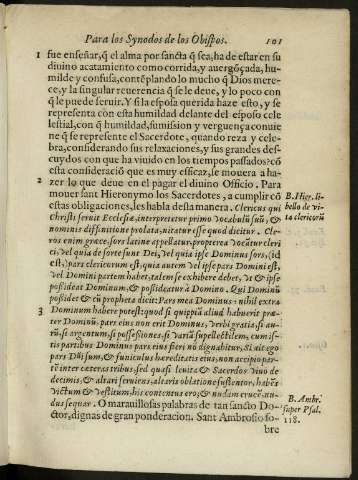 Para los Synodos de los Obispos. 101
1 fue enseñar, q̃ el alma por sancta q̃ sea, ha de estar en su
diuino acatamiento como corrida, y auergõçada, hu-
milde y confusa, contẽplando lo mucho q̃ Dios mere-
ce, y la singular reuerencia q̃ se le deue, y lo poco con
q̃ le puede seruir. Y si la esposa querida haze esto, y se
representa con esta humildad delante del esposo cele
lestial, con q̃ humildad, sumission y verguença conuie
ne q̃ se represente el Sacerdote, quando reza y cele-
bra, considerando sus relaxaciones, y sus grandes des-
cuydos con que ha viuido en los tiempos passados? cõ
esta consideraciõ que es muy eficaz, se mouera a ha-
2 zer lo que deue en el pagar el diuino Officio. Para
mouer sant Hieronymo los Sacerdotes, a cumplir cõ
estas obligaciones, les habla desta manera. Clericus qui
Christi seruit Ecclesiæ, interpretetur primo vocabulũ suũ, &
nominis diffinitione prolata, nitatur esse quod dicitur. Cle-
ros enim græce, sors latine appellatur, propterea vocãtur cleri
ci, vel quia de sorte sunt Dei, vel quia ipse Dominus sors, (id
est) pars clericorum est, quia autem vel ipse pars Domini est,
vel Domini partem habet, talem se exhibere debet, vt & ipse
possideat Dominum, & possideatur à Domino. Qui Dominũ
possidet & cũ propheta dicit: Pars mea Dominus: nihil extra
3 Dominum habere potest: quod si quippiã aliud habuerit præ-
ter Dominũ, pars eius non erit Dominus, verbi gratia, si au-
rũ, si argentum, si possessiones, si variã supellectilem, cum is-
tis partibus Dominus pars eius fieri nõ dignabitur, Si aũt ego
pars Dñi sum, & funiculus hæreditatis eius, non accipio par-
tẽ inter cæteras tribus, sed quasi leuita & Sacerdos viuo de
decimis, & altari seruiens, altaris oblatione sustentor, habẽs
victum & vestitum, his contentus ero, & nudam crucẽ, nu-
dus sequar. O marauillosas palabras de tan sancto Do-
ctor, dignas de gran ponderacion. Sant Ambrosio so-
bre
B. Hier. li-
bello de vi-
ta clericorũ
B. Ambr.
super Psal.
118.